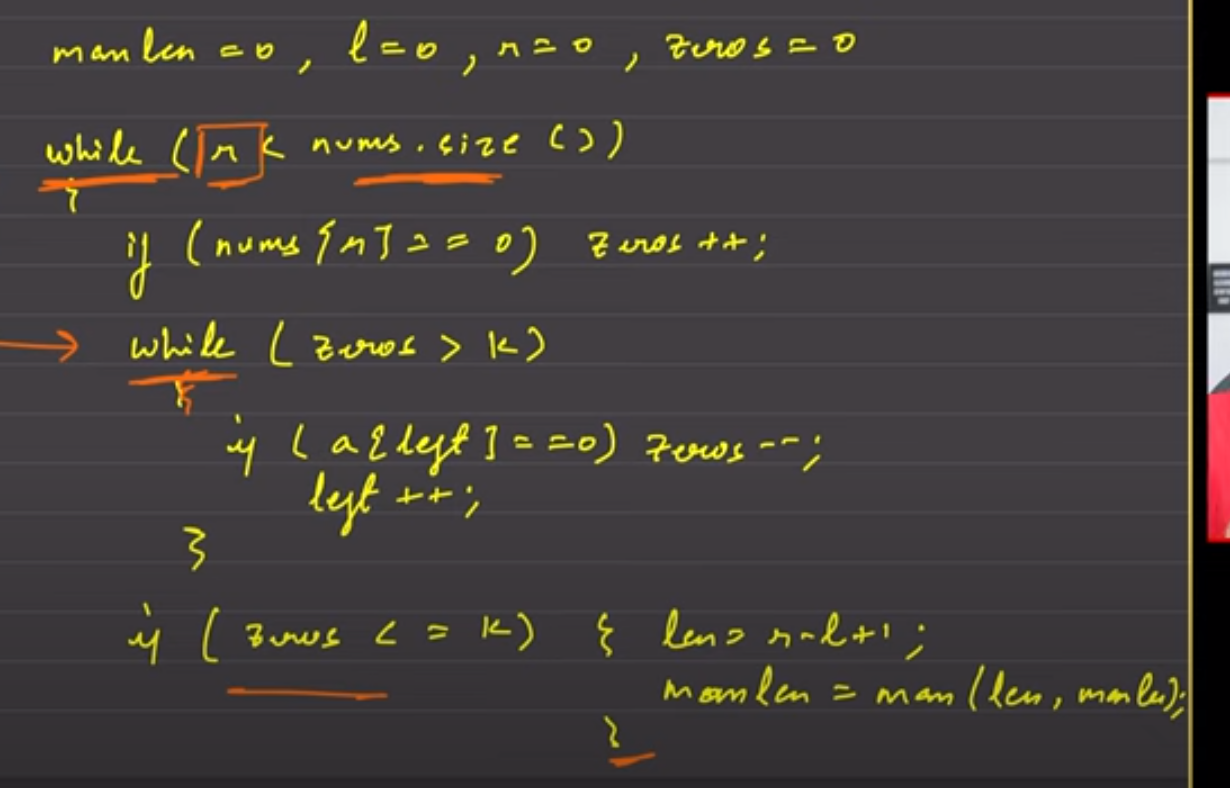 maxlen = 0, l = 0, r = 0, zeros = 0
while (r < nums.size())
{
if (nums[r] == 0) zeros++;
while (zeros > k)
{
if (a[left] == 0) zeros--;
left++;
}
if (zeros <= k) { len = r-l+1;
maxlen = max(len, maxlen);
}